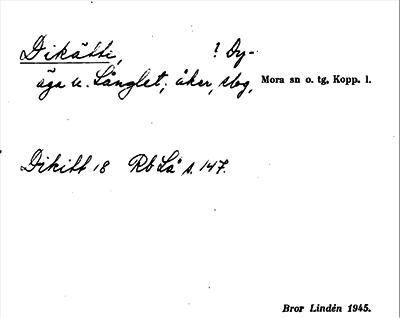 Dikätti, ? Dy-
äga u. Långlet; åker, skog, Mora sn o. tg, Kopp. l.
Dikitt 18 Rb Lå s. 147.
Bror Lindén 1945.